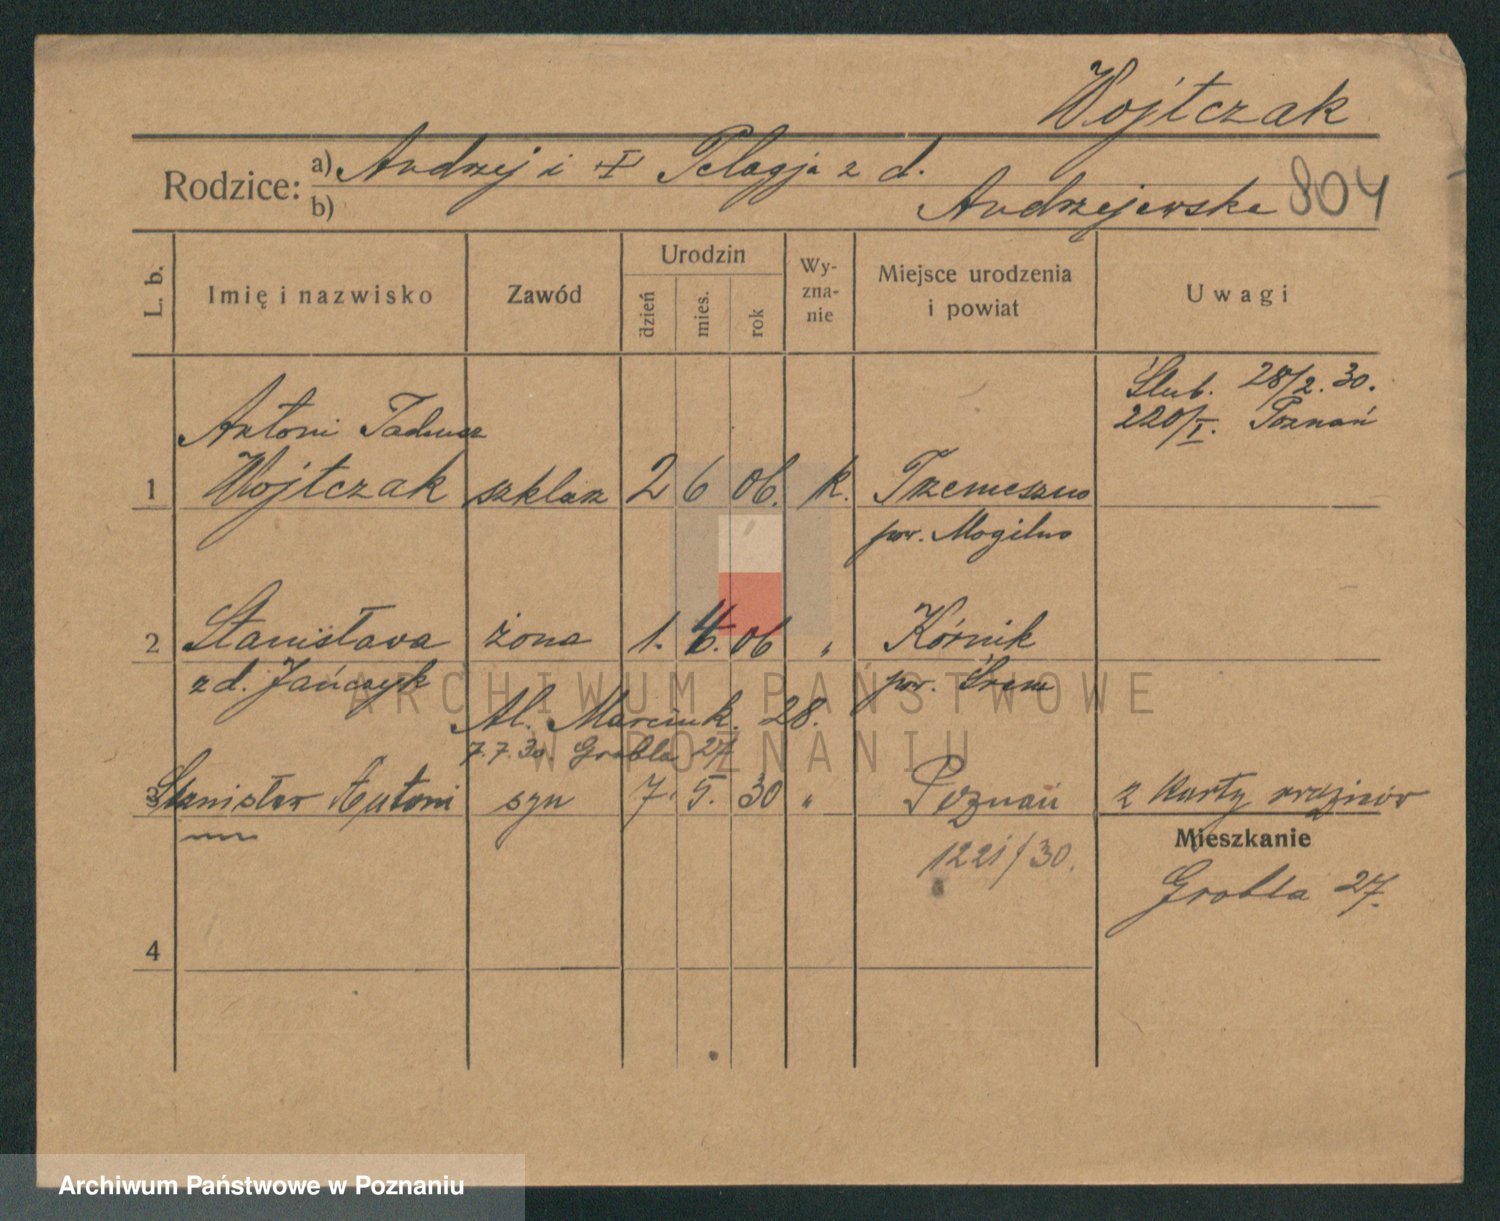 Wojtczak
Rodzice: a) Andrzej i + Pelagja z d.
b) Andrzejewska 804
L. b. Imię i nazwisko Zawód Urodzin dzień mies. rok Wy-zna-nie Miejsce urodzenia i powiat Uwagi
Ślub. 28/2. 30.
220/I. Poznań
Antoni Tadeusz
1 Wojtczak szklarz 2 6 06. k. Trzemeszno
pow. Mogilno
2 Stanisława żona 1. 4. 06 " Kórnik
z d. Jańczyk pow. Śrem
Al. Marcink. 28.
7.7.30. Grobla 27
3 Stanisław Antoni syn 7. 5. 30 " Poznań z karty
1221/30.
Mieszkanie
Grobla 27.
4
ARCHIWUM PAŃSTWOWE
W POZNANIU
Archiwum Państwowe w Poznaniu